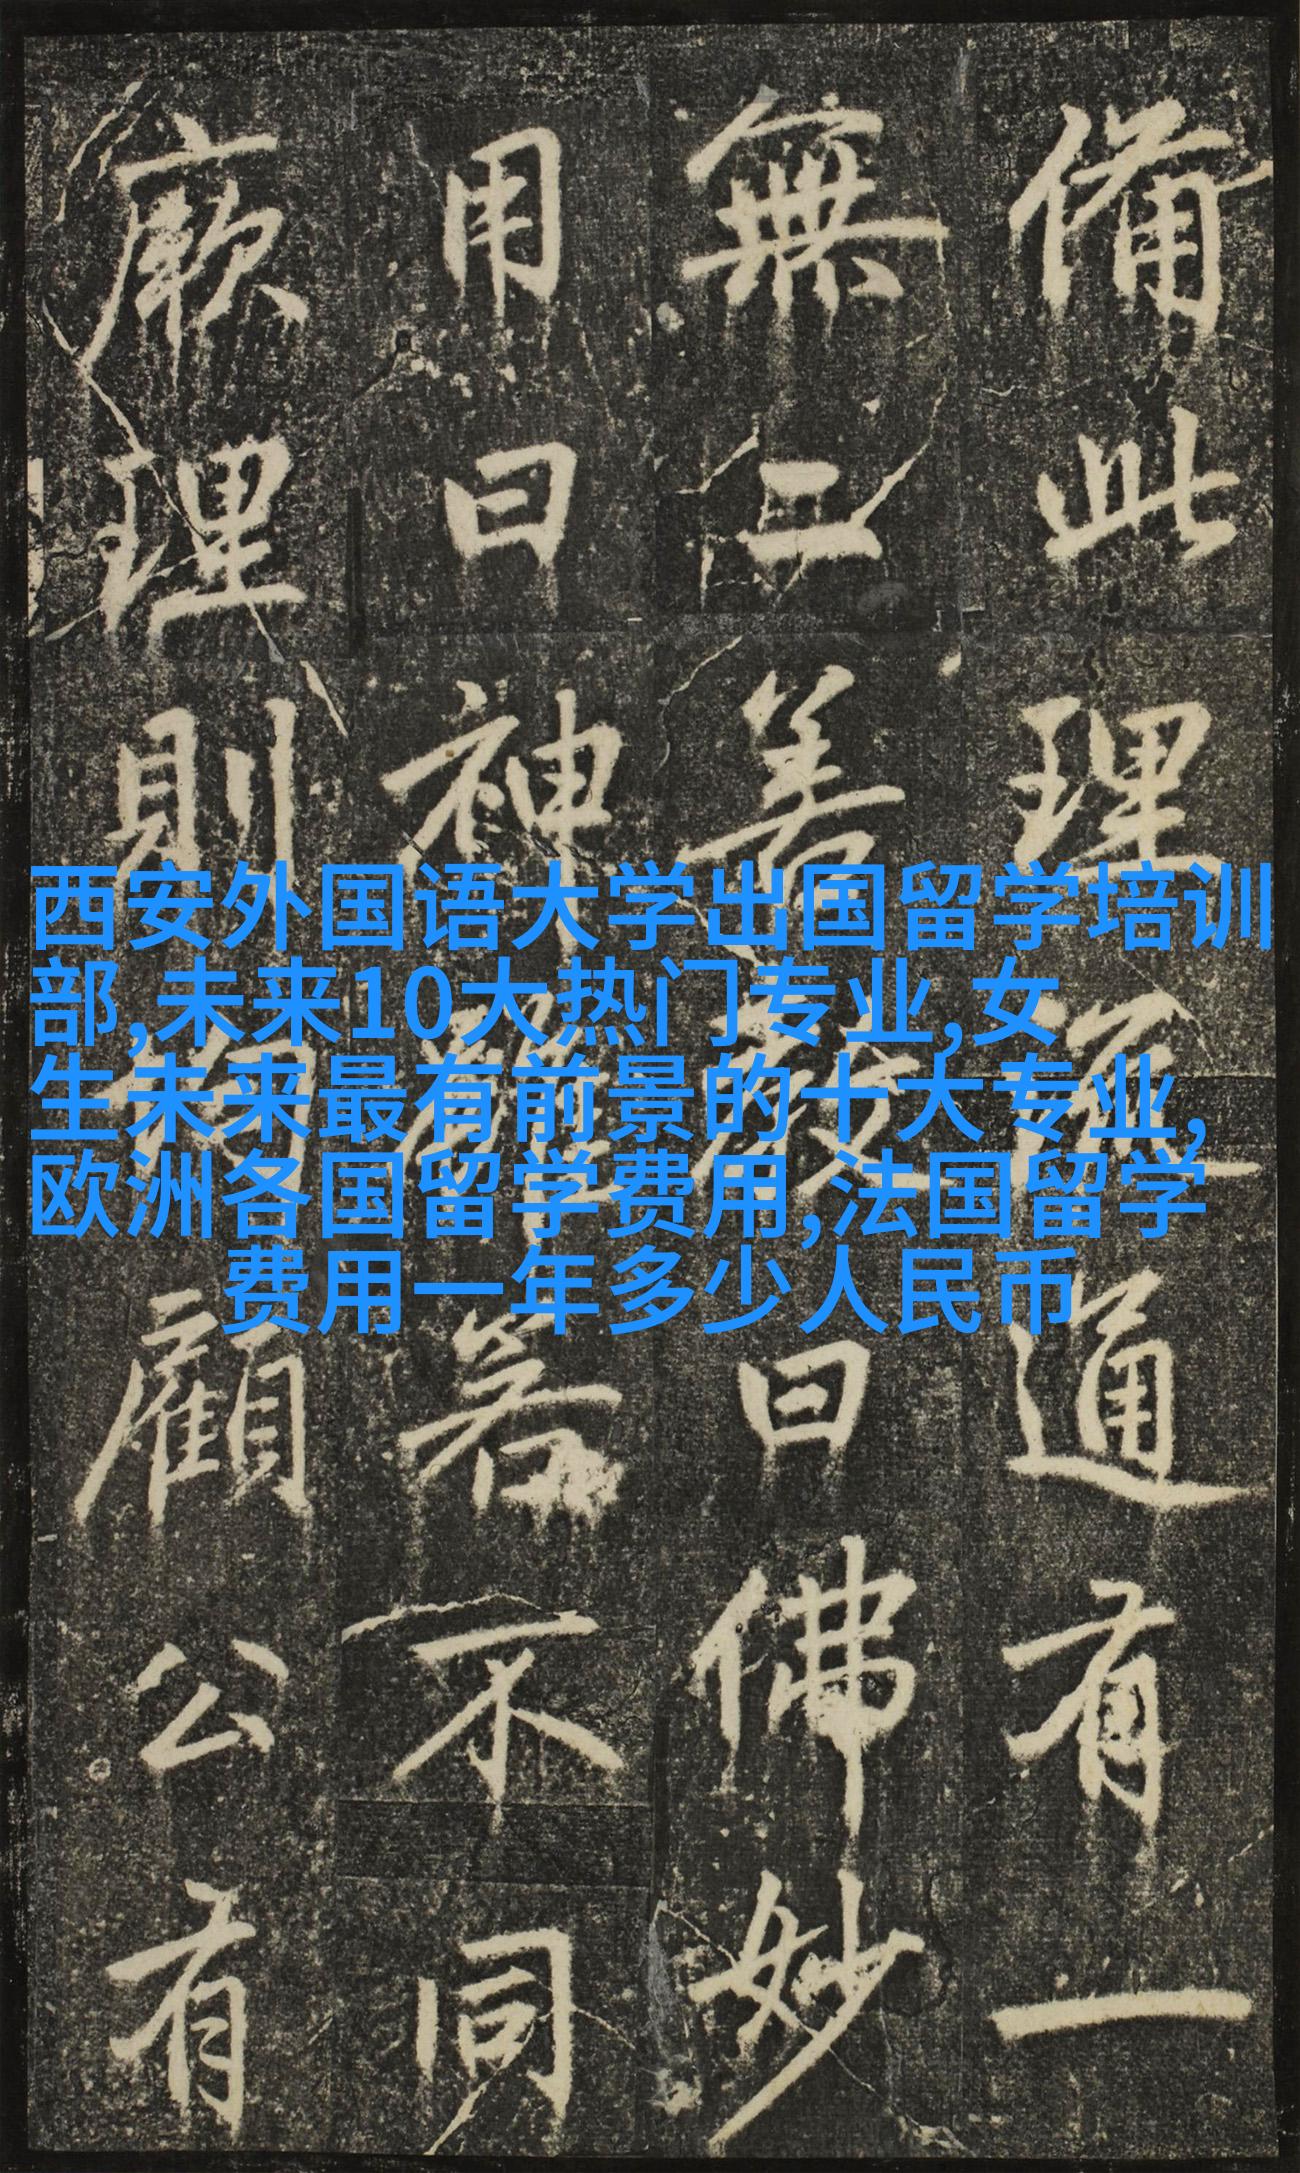 備此理通有一
無二善教曰佛妙
用曰神體若不同
厥理則均顧公有
西安外国语大学出国留学培训
部,未来10大热门专业,女
生未来最有前景的十大专业,
欧洲各国留学费用,法国留学
费用一年多少人民币